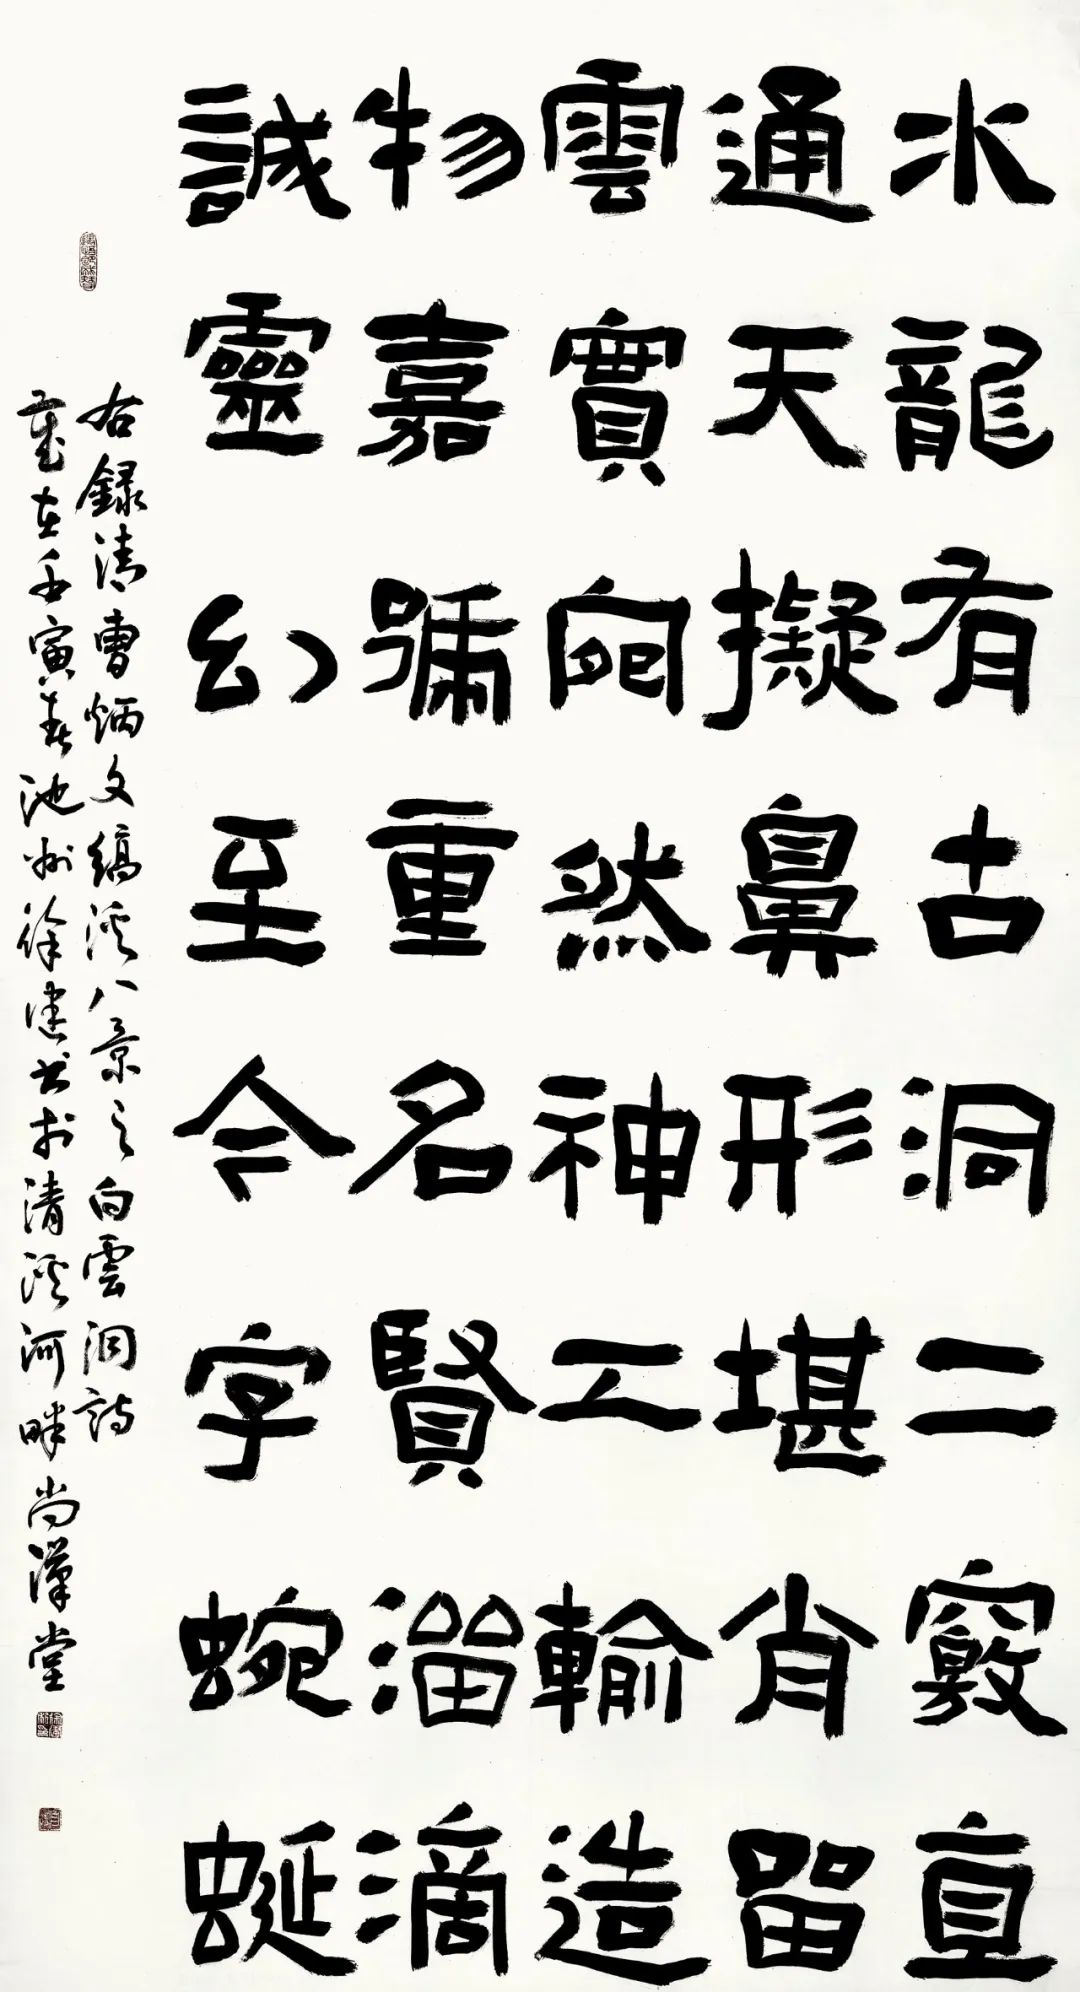 水龍有古洞二竅直
通天擬鼻形堪肖留
雲實宛然神工輸造
物嘉號重名賢溜滴
誠靈幻至今字蜿蜒
右録清曹炳文縞溪八景之白雲洞詩
歲在壬寅春池州徐建書於清溪河畔尚漢堂